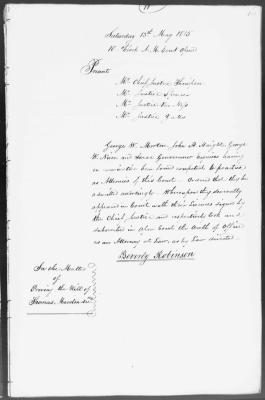 Saturday 13th May 1815
10 oClock A.M. Court opened
Present
Mr Chief Justice Thompson
Mr Justice Spencer
Mr Justice Van Ness
Mr Justice Yates
George W. Morton, John A. Haight, George
W. and Isaac Governeur Esquires having
on examination been found competent to practice
as Attornies of this Court. Ordered that they be
admitted accordingly. Whereupon they severally
appeared in Court with their licenses signed by
the Chief Justice and respectively took and
subscribed in open Court the Oath of Office
as an Attorney at Law, as by Law directed.
Beverly Robinson
In the Matter
of
Proving the Will of
Thomas